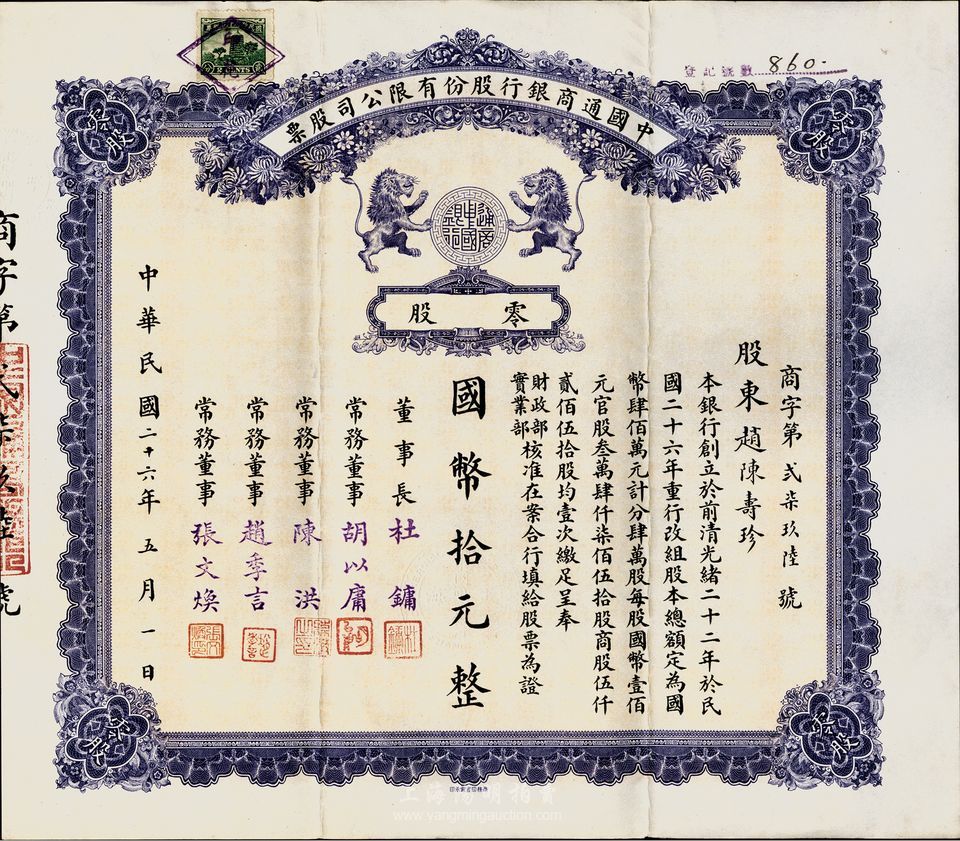 登記號數 860.
中國通商銀行股份有限公司股票
通商中國銀行
零股
零股
零股
商字第貳柒玖陸號
股東趙陳壽珍
本銀行創立於前清光緒二十二年於民
國二十六年重行改組股本總額定為國
幣肆佰萬元計分肆萬股每股國幣壹佰
元官股叁萬肆仟柒佰伍拾股商股伍仟
貳佰伍拾股均壹次繳足呈奉
財政部
實業部核准在案合行填給股票為證
國幣拾元整
董事長 杜鏞
常務董事 胡以庸
常務董事 陳洪
常務董事 趙季言
常務董事 張文煥
中華民國二十六年五月一日
商字第貳柒玖陸號
零股
零股
上海陽明拍賣
www.yangmingauction.com